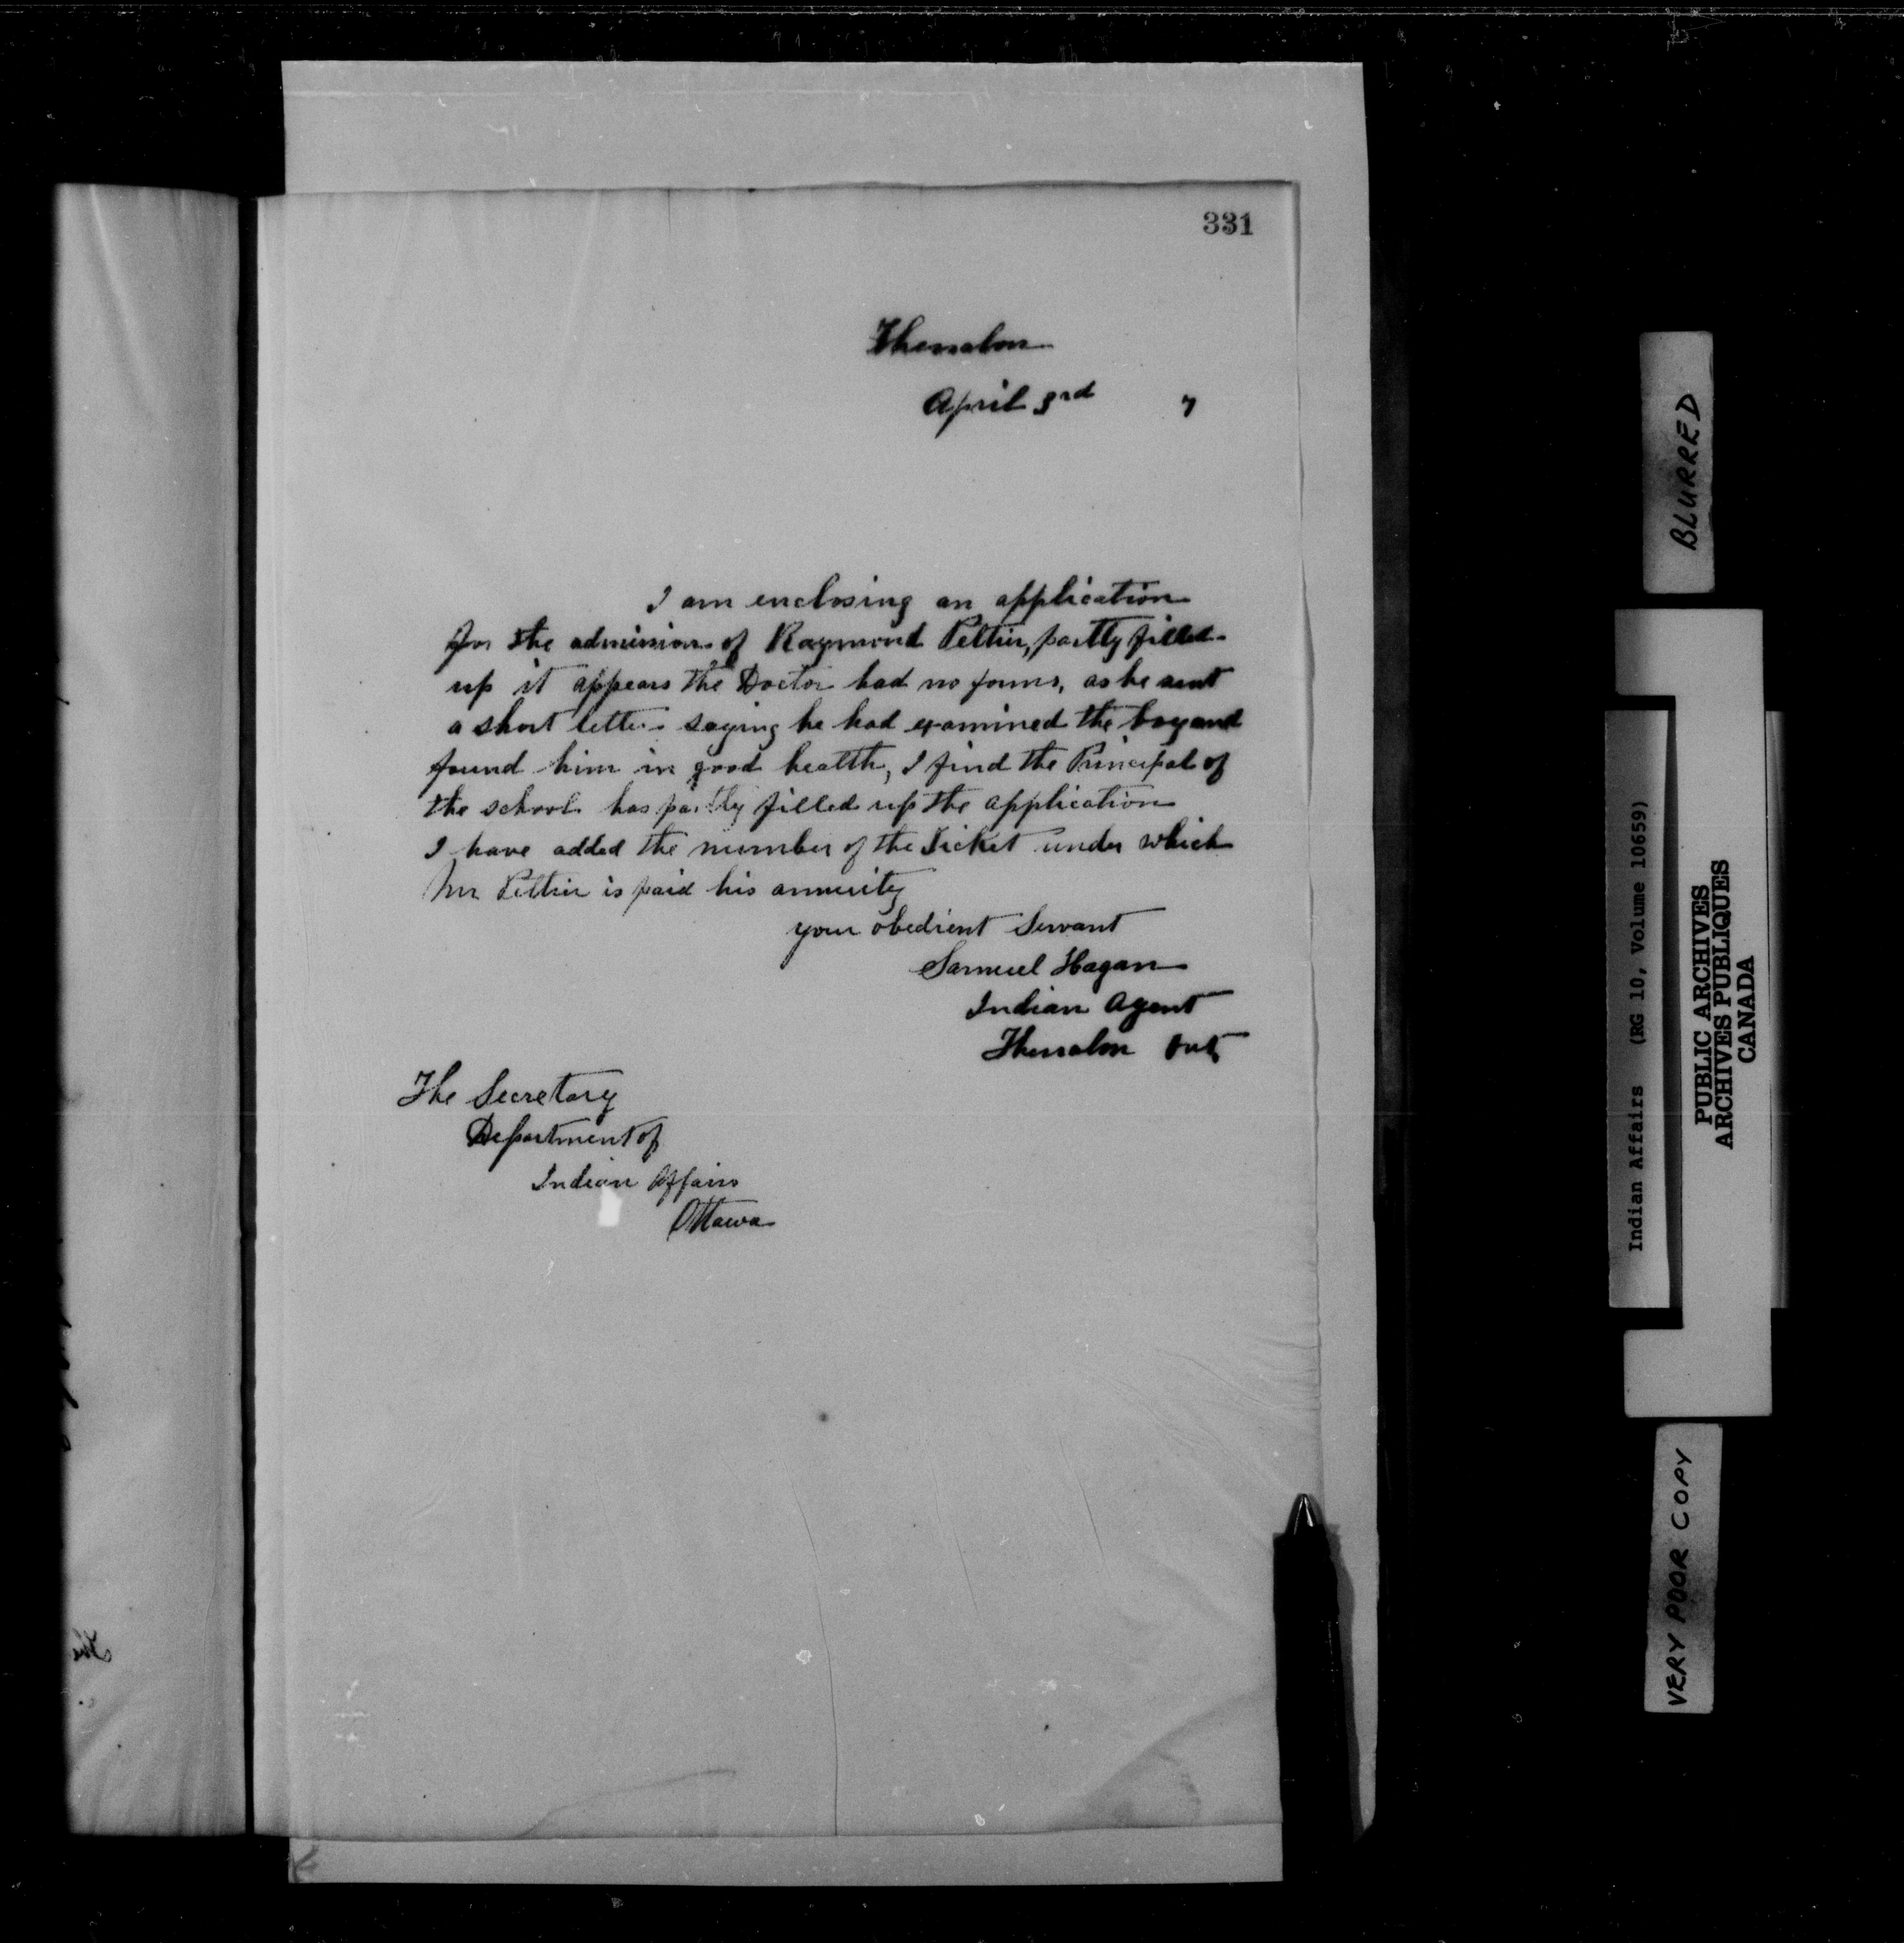 331
Thessalon
April 3rd 7
I am enclosing an application
for the admission of Raymond Peltier, partly filled
up it appears the Doctor had no forms, as he sent
a short letter saying he had examined the boy and
found him in good health, I find the Principal of
the school has partly filled up the application
I have added the number of the Ticket under which
Mr Peltier is paid his annuity
your obedient Servant
Samuel Hagan
Indian Agent
Thessalon Ont
The Secretary
Department of
Indian Affairs
Ottawa
BLURRED
Indian Affairs (RG 10, Volume 10659)
PUBLIC ARCHIVES
ARCHIVES PUBLIQUES
CANADA
VERY POOR COPY